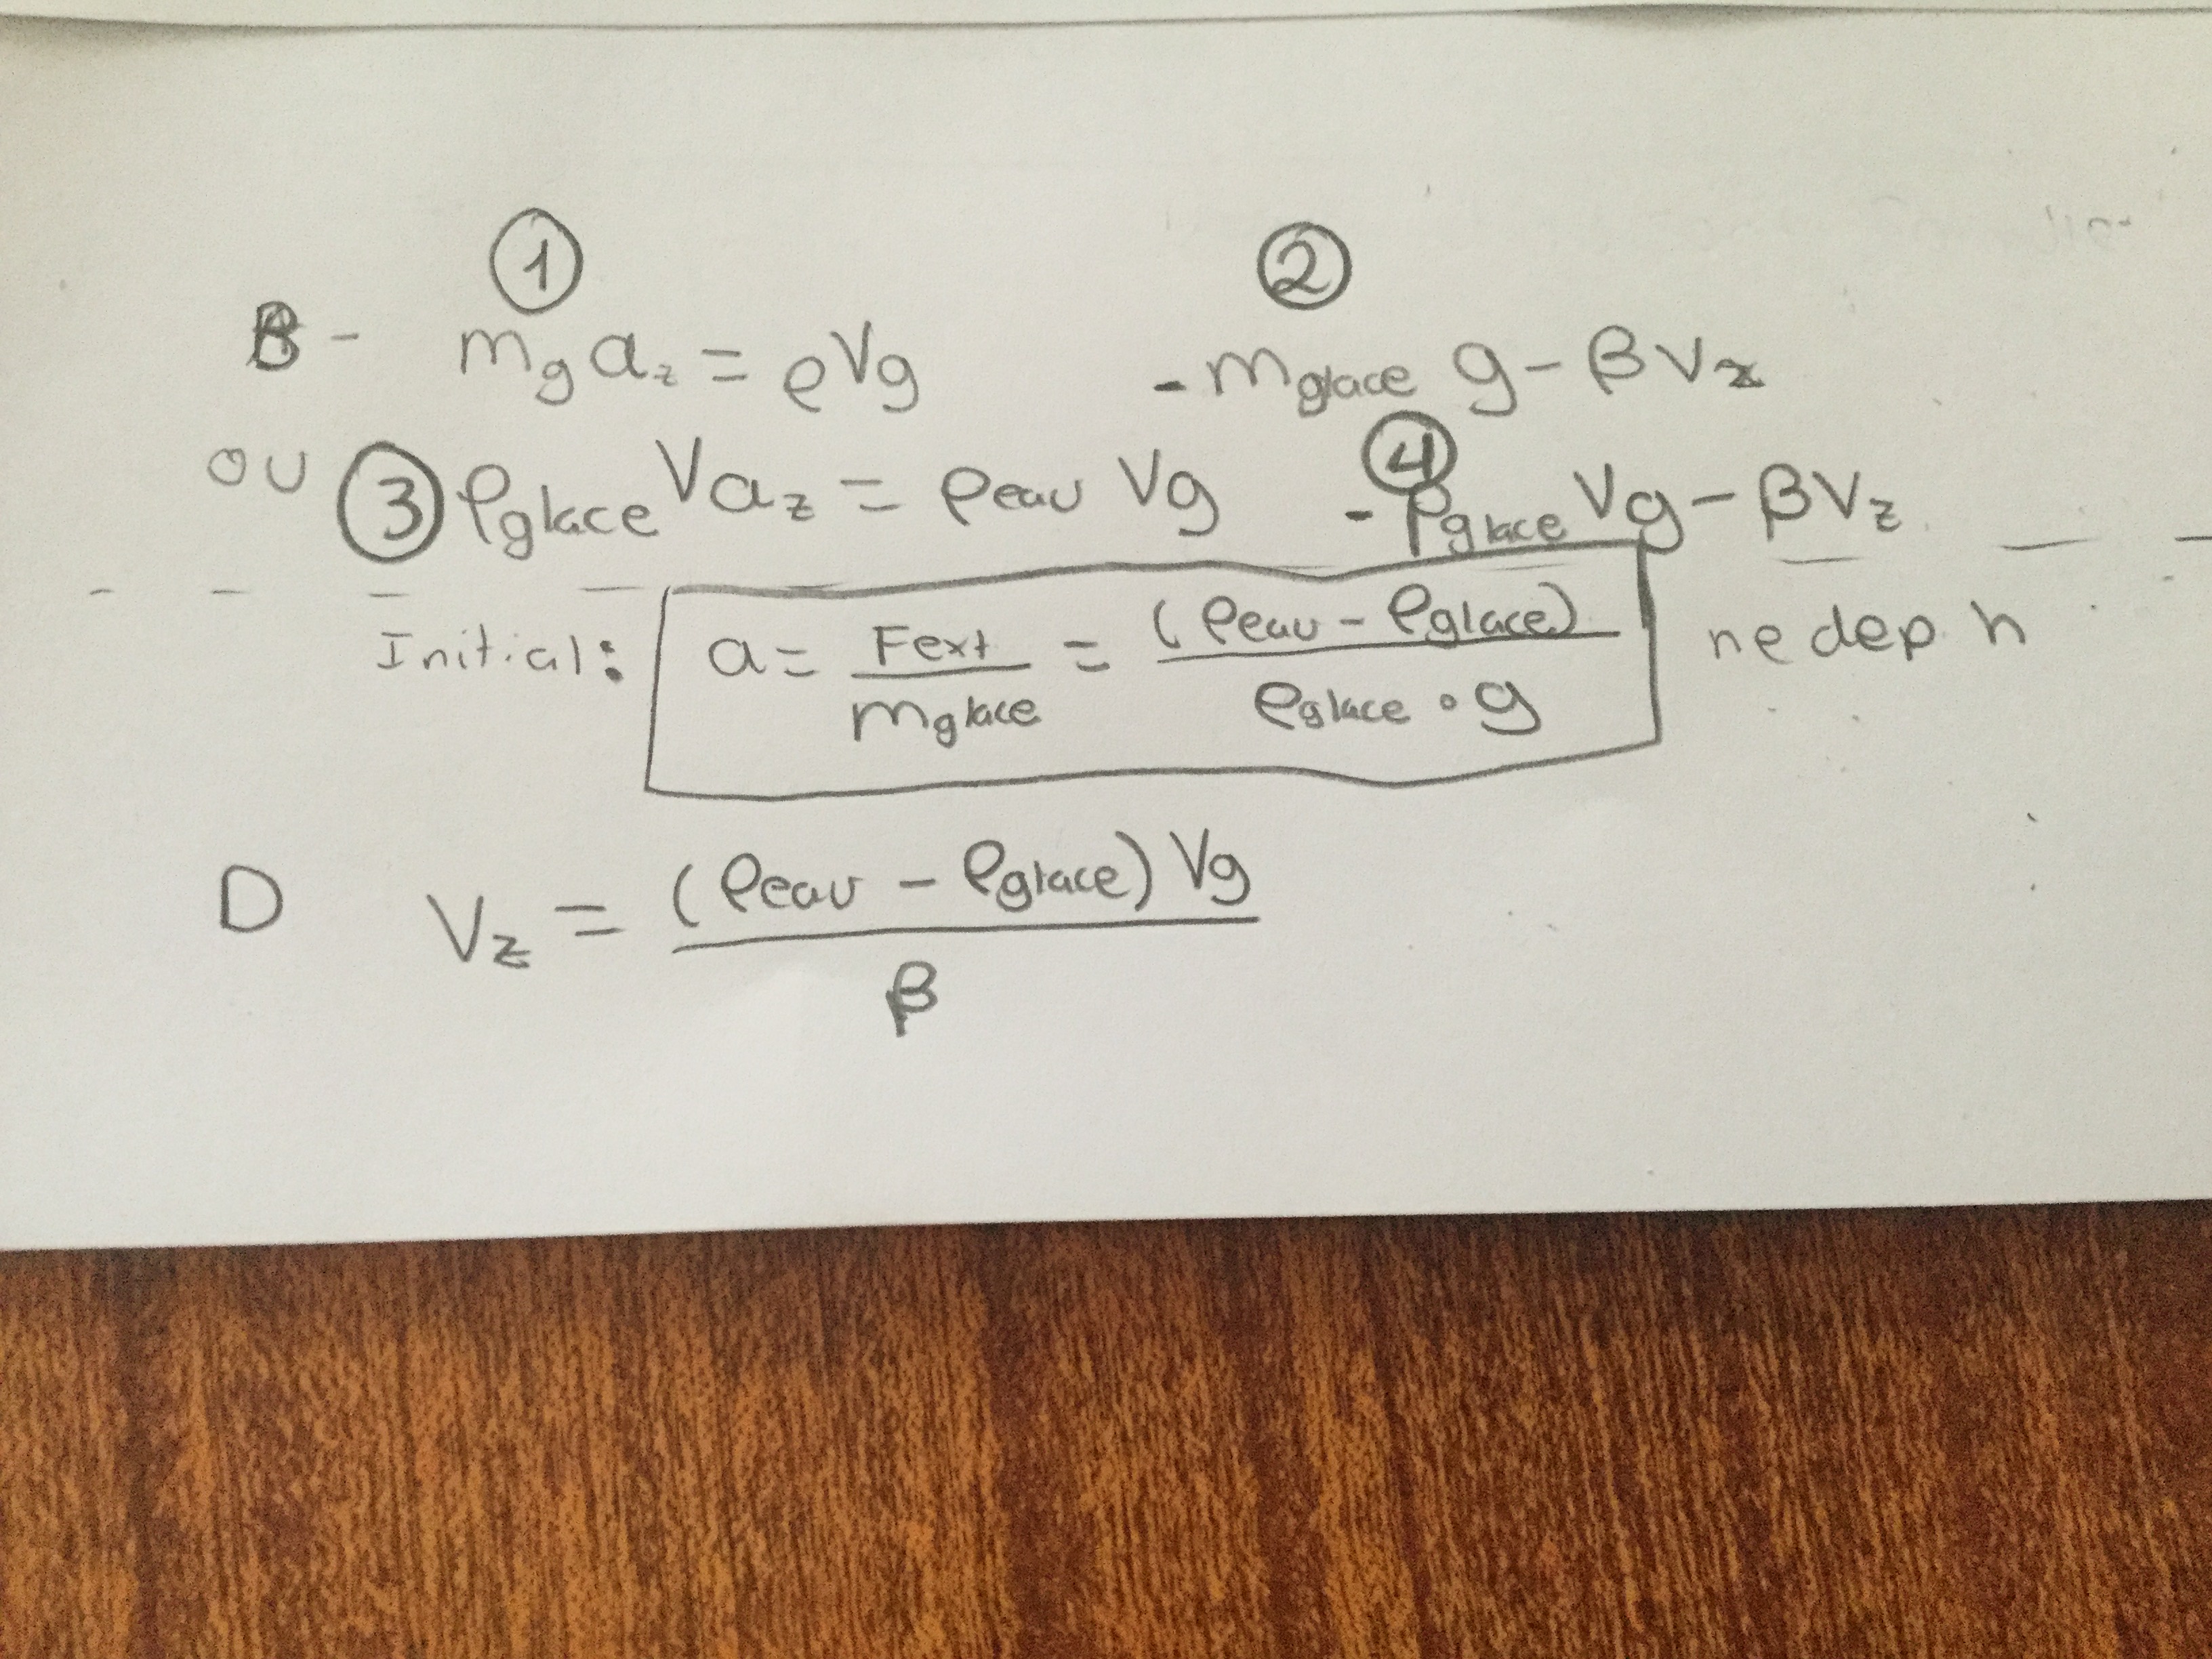 ① ②
B - mg az = ρVg - mglace g - βVz
ou ③ ρglace Vaz = ρeau Vg ④ - ρglace Vg - βVz
Initial: a = Fext / mglace = (ρeau - ρglace) / ρglace • g ne dep h
D Vz = (ρeau - ρglace) Vg / β